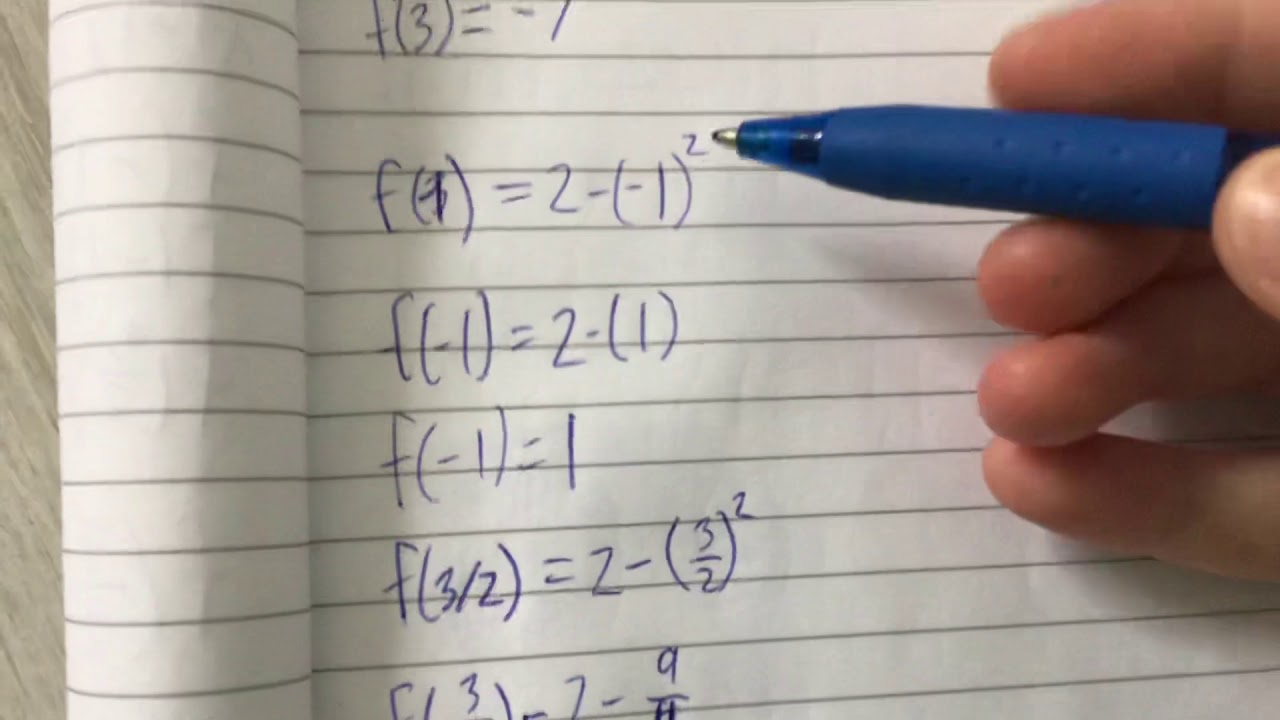 f(3) = -7
f(-1) = 2-(-1)²
f(-1) = 2-(1)
f(-1) = 1
f(3/2) = 2-(3/2)²
f(3/2) = 2 - 9/4